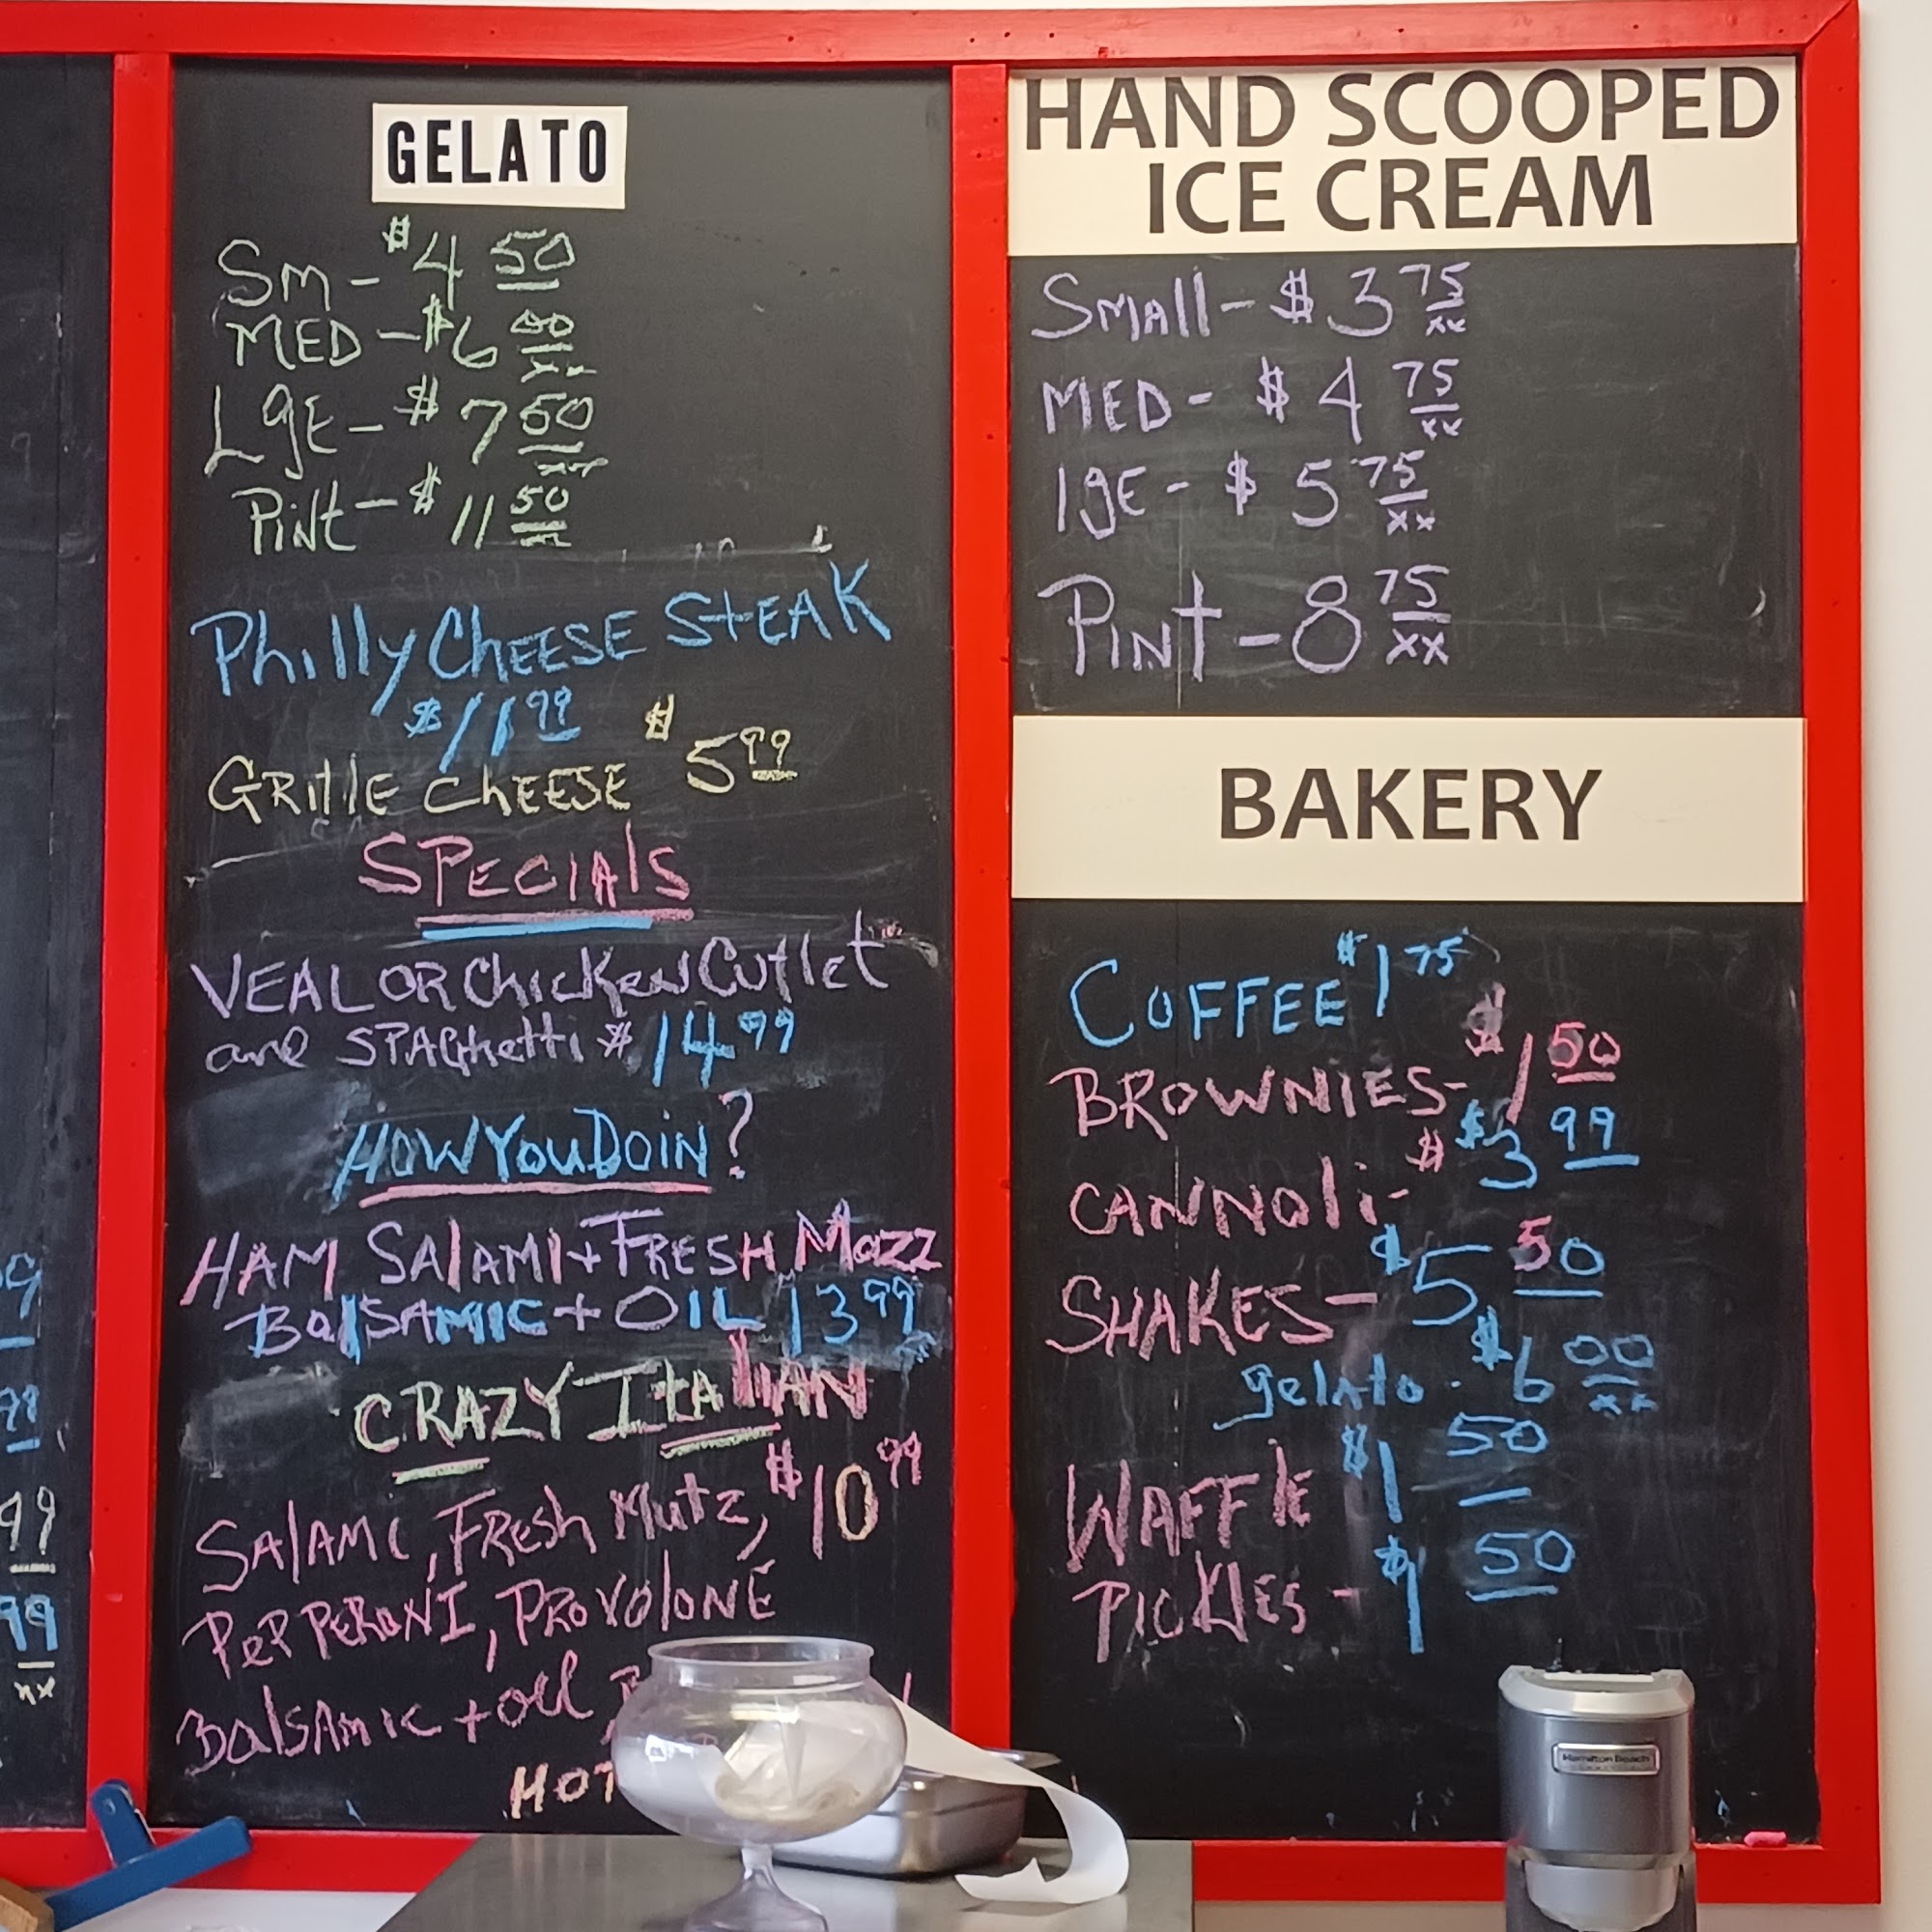 GELATO
Sm - $4 50
MED - $6 00 xx
LgE - $7 50 xx
Pint - $11 50
Philly CHEESE STEAK
$11 99
GRIllE CHEESE $5 99
SPECIAlS
VEAL OR ChickeN Cutlet
and SPAGhetti $14 99
HOW YOU DOIN?
HAM SAlAMI + FRESH Mozz
BalSAMIC + OIL 13 99
CRAZY ItAlIAN
SAlAMi, FRESh Mutz, $10 99
PePPERONI, PROVOlONE
BalsAmic + oil
HOT
HAND SCOOPED
ICE CREAM
SMAll - $3 75 xx
MED - $4 75 xx
lgE - $5 75 xx
PINt - 8 75 xx
BAKERY
COFFEE $1 75
BROWNIES - $1 50
CANNOli - $ $3 99
SHAKES - $5 50
gelAto - $6 00 xx
WAFFlE $1 50
PICKlES - $1 50
9
99
99
99
xx
Hamilton Beach